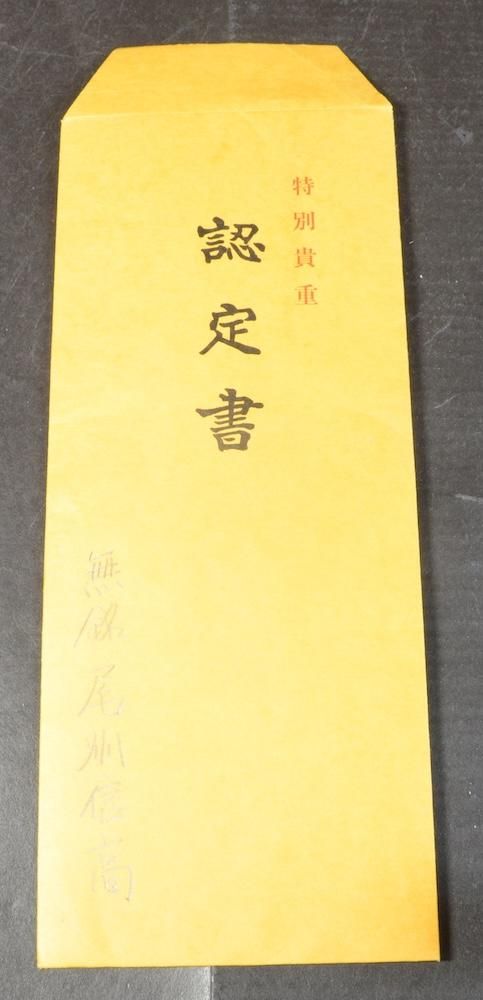 特別貴重
認定書
無銘尾州信高